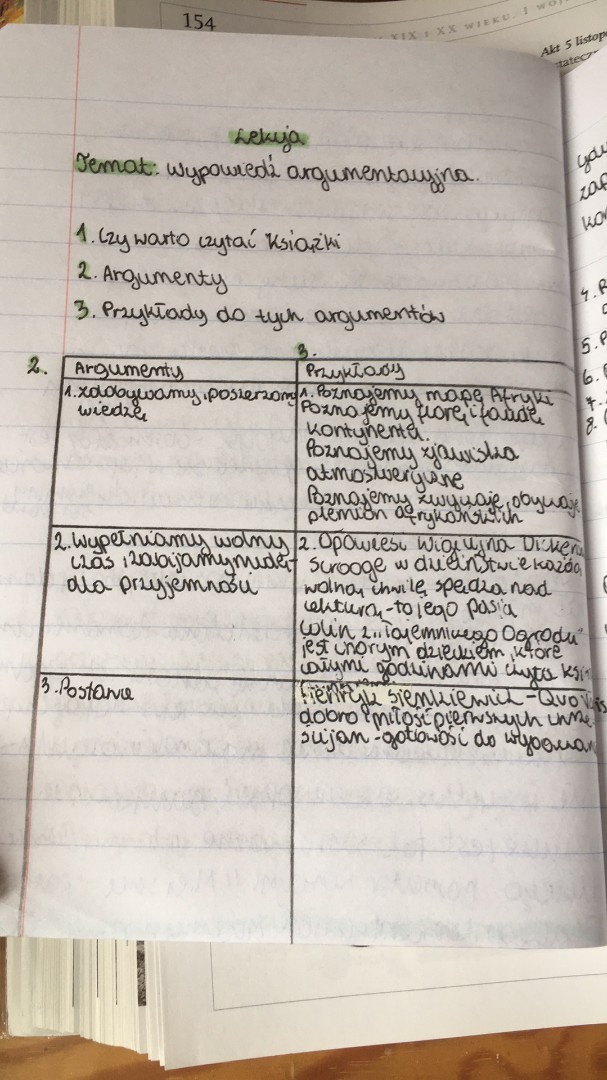 154
XIX I XX WIEKU. I
Akt 5 listop
Lekcja
Temat: Wypowiedź argumentacyjna.
1. Czy warto czytać książki
2. Argumenty
3. Przykłady do tych argumentów
2.
3.
Argumenty
Przykłady
1. zdobywamy, poszerzamy
wiedzę
1. Poznajemy mapę Afryki
Poznajemy florę i faunę
kontynentu.
Poznajemy zjawiska
atmosferyczne
Poznajemy zwyczaje, obyczaje
plemion afrykańskich
2. Wypełniamy wolny
czas, zabijamy nudę,
dla przyjemności
2. Opowieść Wigilijna Dicken
Scrooge w dzieiństwie każdą
wolną chwilę spędza nad
lekturą - to jego pasja
Colin z ,,Tajemniczego Ogrodu"
jest chorym dzieckiem, które
całymi godzinami czyta ksi
3. Postawie
Henryk Sienkiewicz - Quo V is
dobro i miłość pierwszych chrze
ścijan - gotowość do
4.
5. P
6.
7.
8.